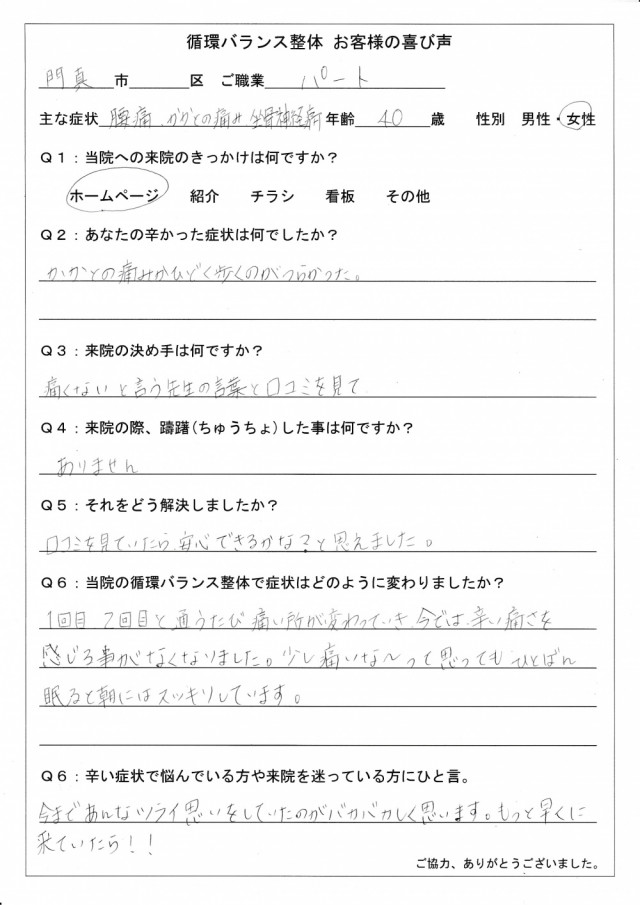 循環バランス整体 お客様の喜び声
門真 市 区 ご職業 パート
主な症状 腰痛、かかとの痛み 坐骨神経痛 年齢 40 歳 性別 男性・女性
Q1：当院への来院のきっかけは何ですか？
ホームページ 紹介 チラシ 看板 その他
Q2：あなたの辛かった症状は何でしたか？
かかとの痛みがひどく歩くのがつらかった。
Q3：来院の決め手は何ですか？
痛くないと言う先生の言葉と口コミを見て
Q4：来院の際、躊躇(ちゅうちょ)した事は何ですか？
ありません
Q5：それをどう解決しましたか？
口コミを見ていたら、安心できるかな？と思えました。
Q6：当院の循環バランス整体で症状はどのように変わりましたか？
1回目 2回目と通うたび痛い所が変わっていき、今では、辛い痛さを
感じる事がなくなりました。少し痛いな〜って思ってもひとばん
眠ると朝にはスッキリしています。
Q6：辛い症状で悩んでいる方や来院を迷っている方にひと言。
今まであんなツライ思いをしていたのがバカバカしく思います。もっと早くに
来ていたら！！
ご協力、ありがとうございました。